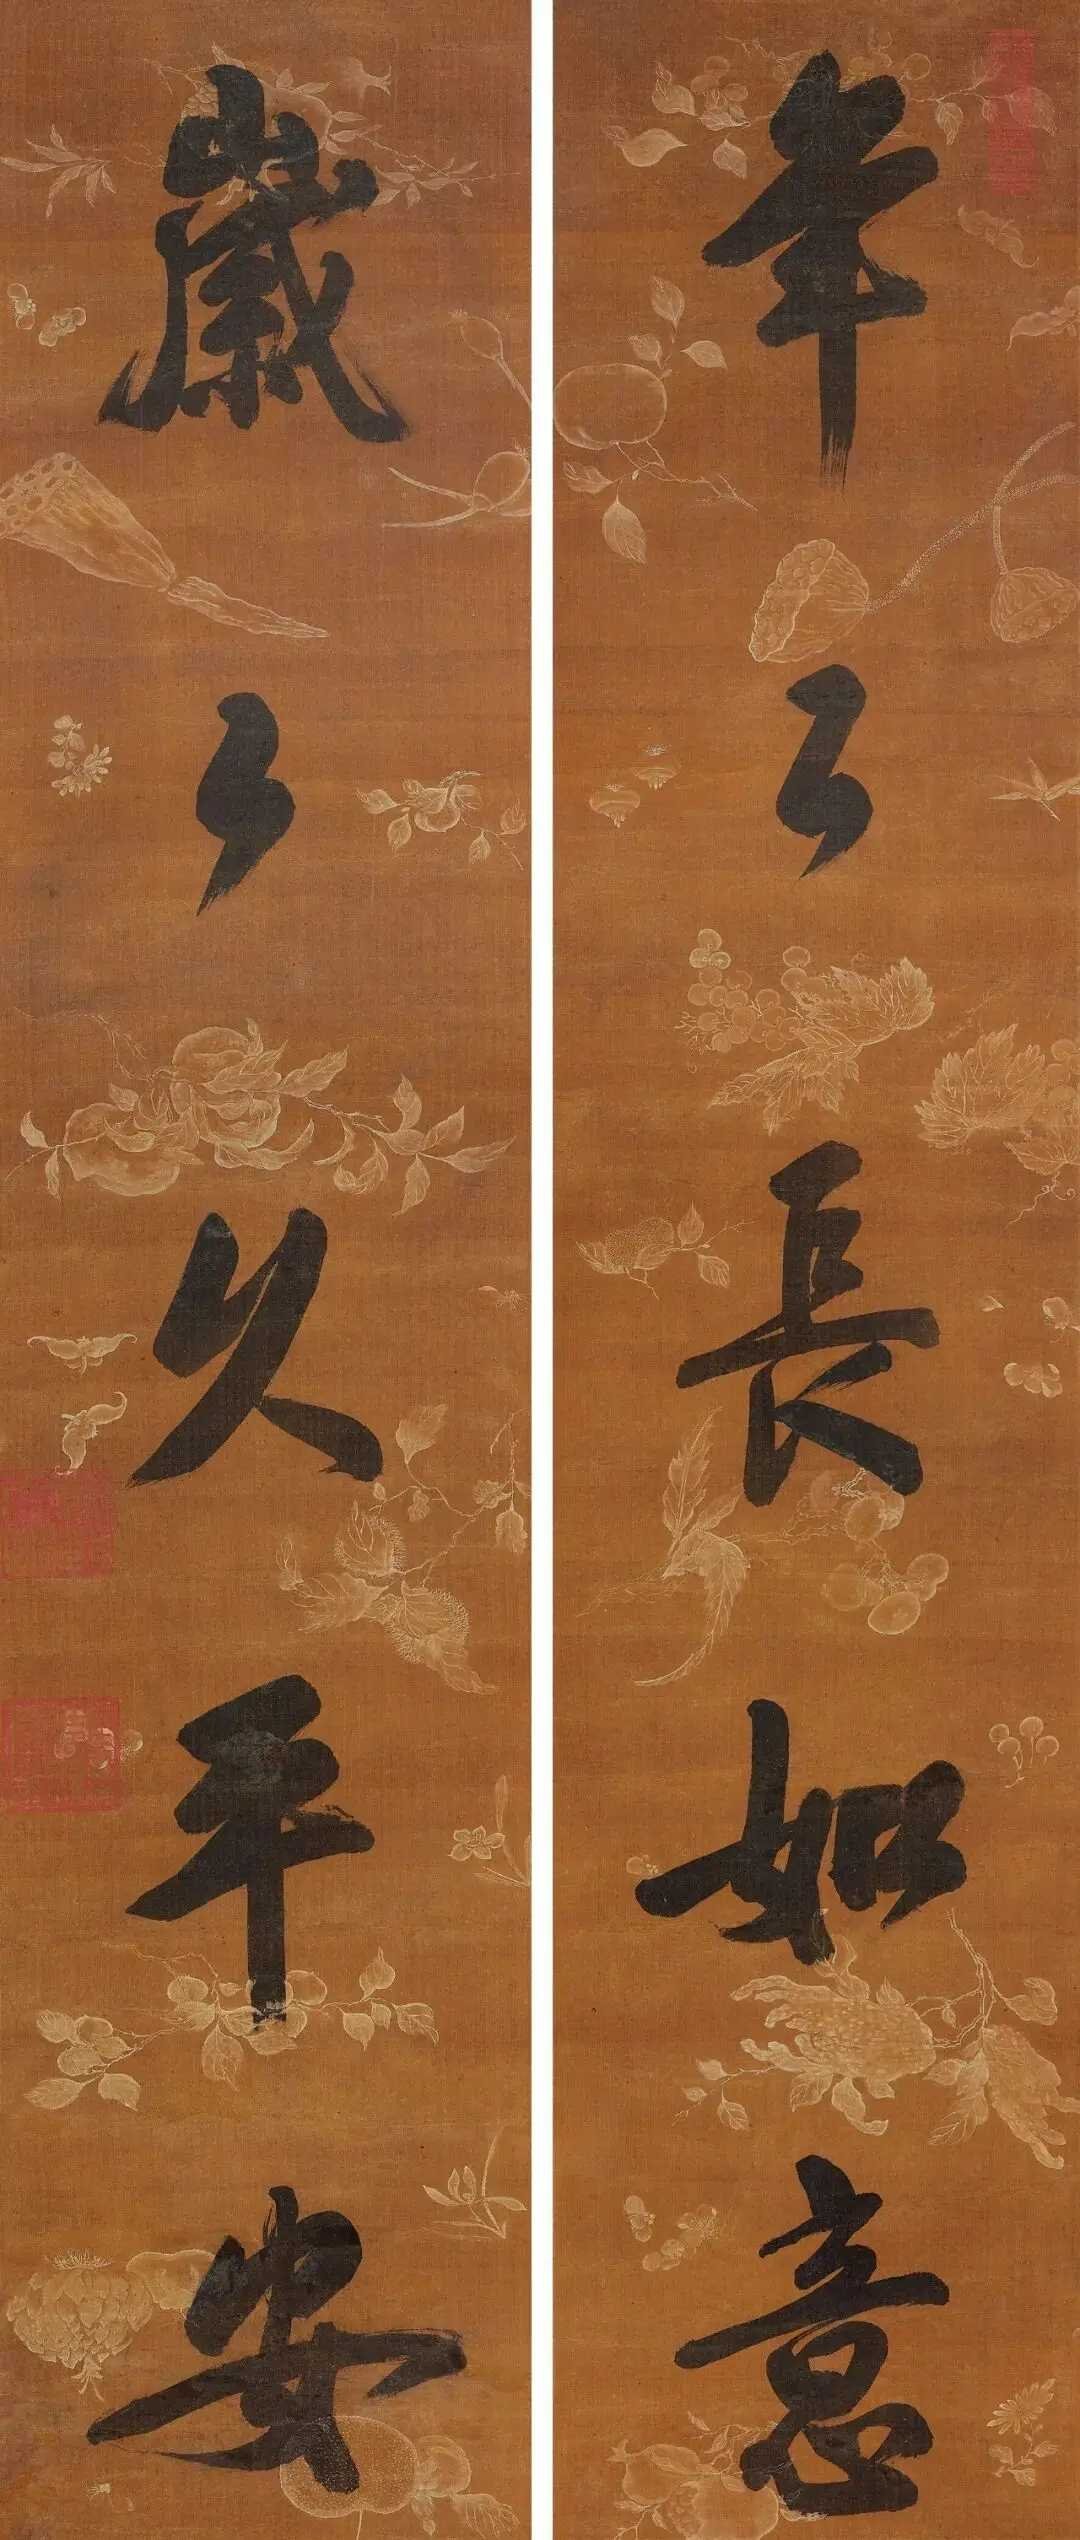 年々長如意
歲々久平安